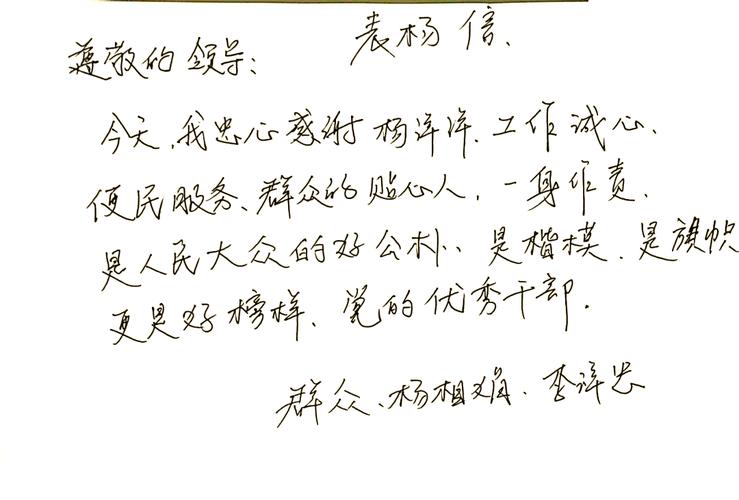 表杨信.
尊敬的领导:
今天,我忠心感谢杨洋洋.工作诚心、
便民服务、群众的贴心人,一身作责.
是人民大众的好公朴、是楷模.是旗帜
更是好榜样、党的优秀干部.
群众、杨相娟.李洋忠